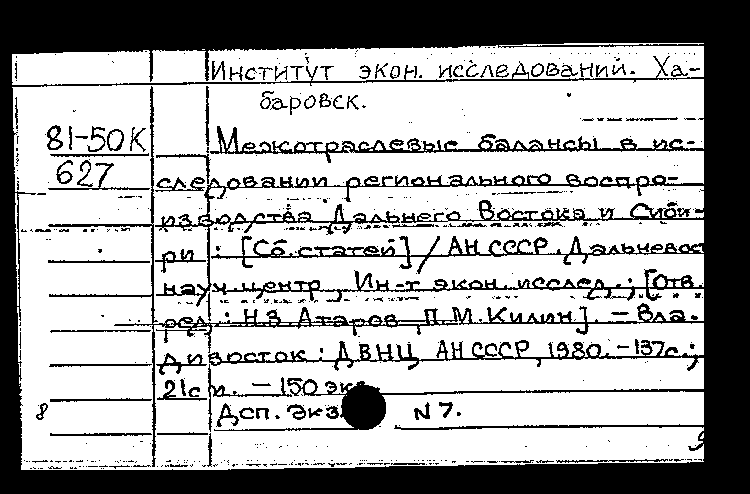 Институт экон. исследований. Ха-
баровск.
81-50К
627
Межотраслевые балансы в ис-
следовании регионального воспро-
изводства Дальнего Востока и Сиби-
ри : [Сб. статей] / АН СССР. Дальневост
науч. центр, Ин-т экон. исслед. ; [Отв.
ред. : Н.З. Атаров, П.М. Килин]. – Вла-
дивосток : ДВНЦ АН СССР, 1980. – 137с. ;
21см. – 150 экз.
8
Дсп. Экз. N 7.